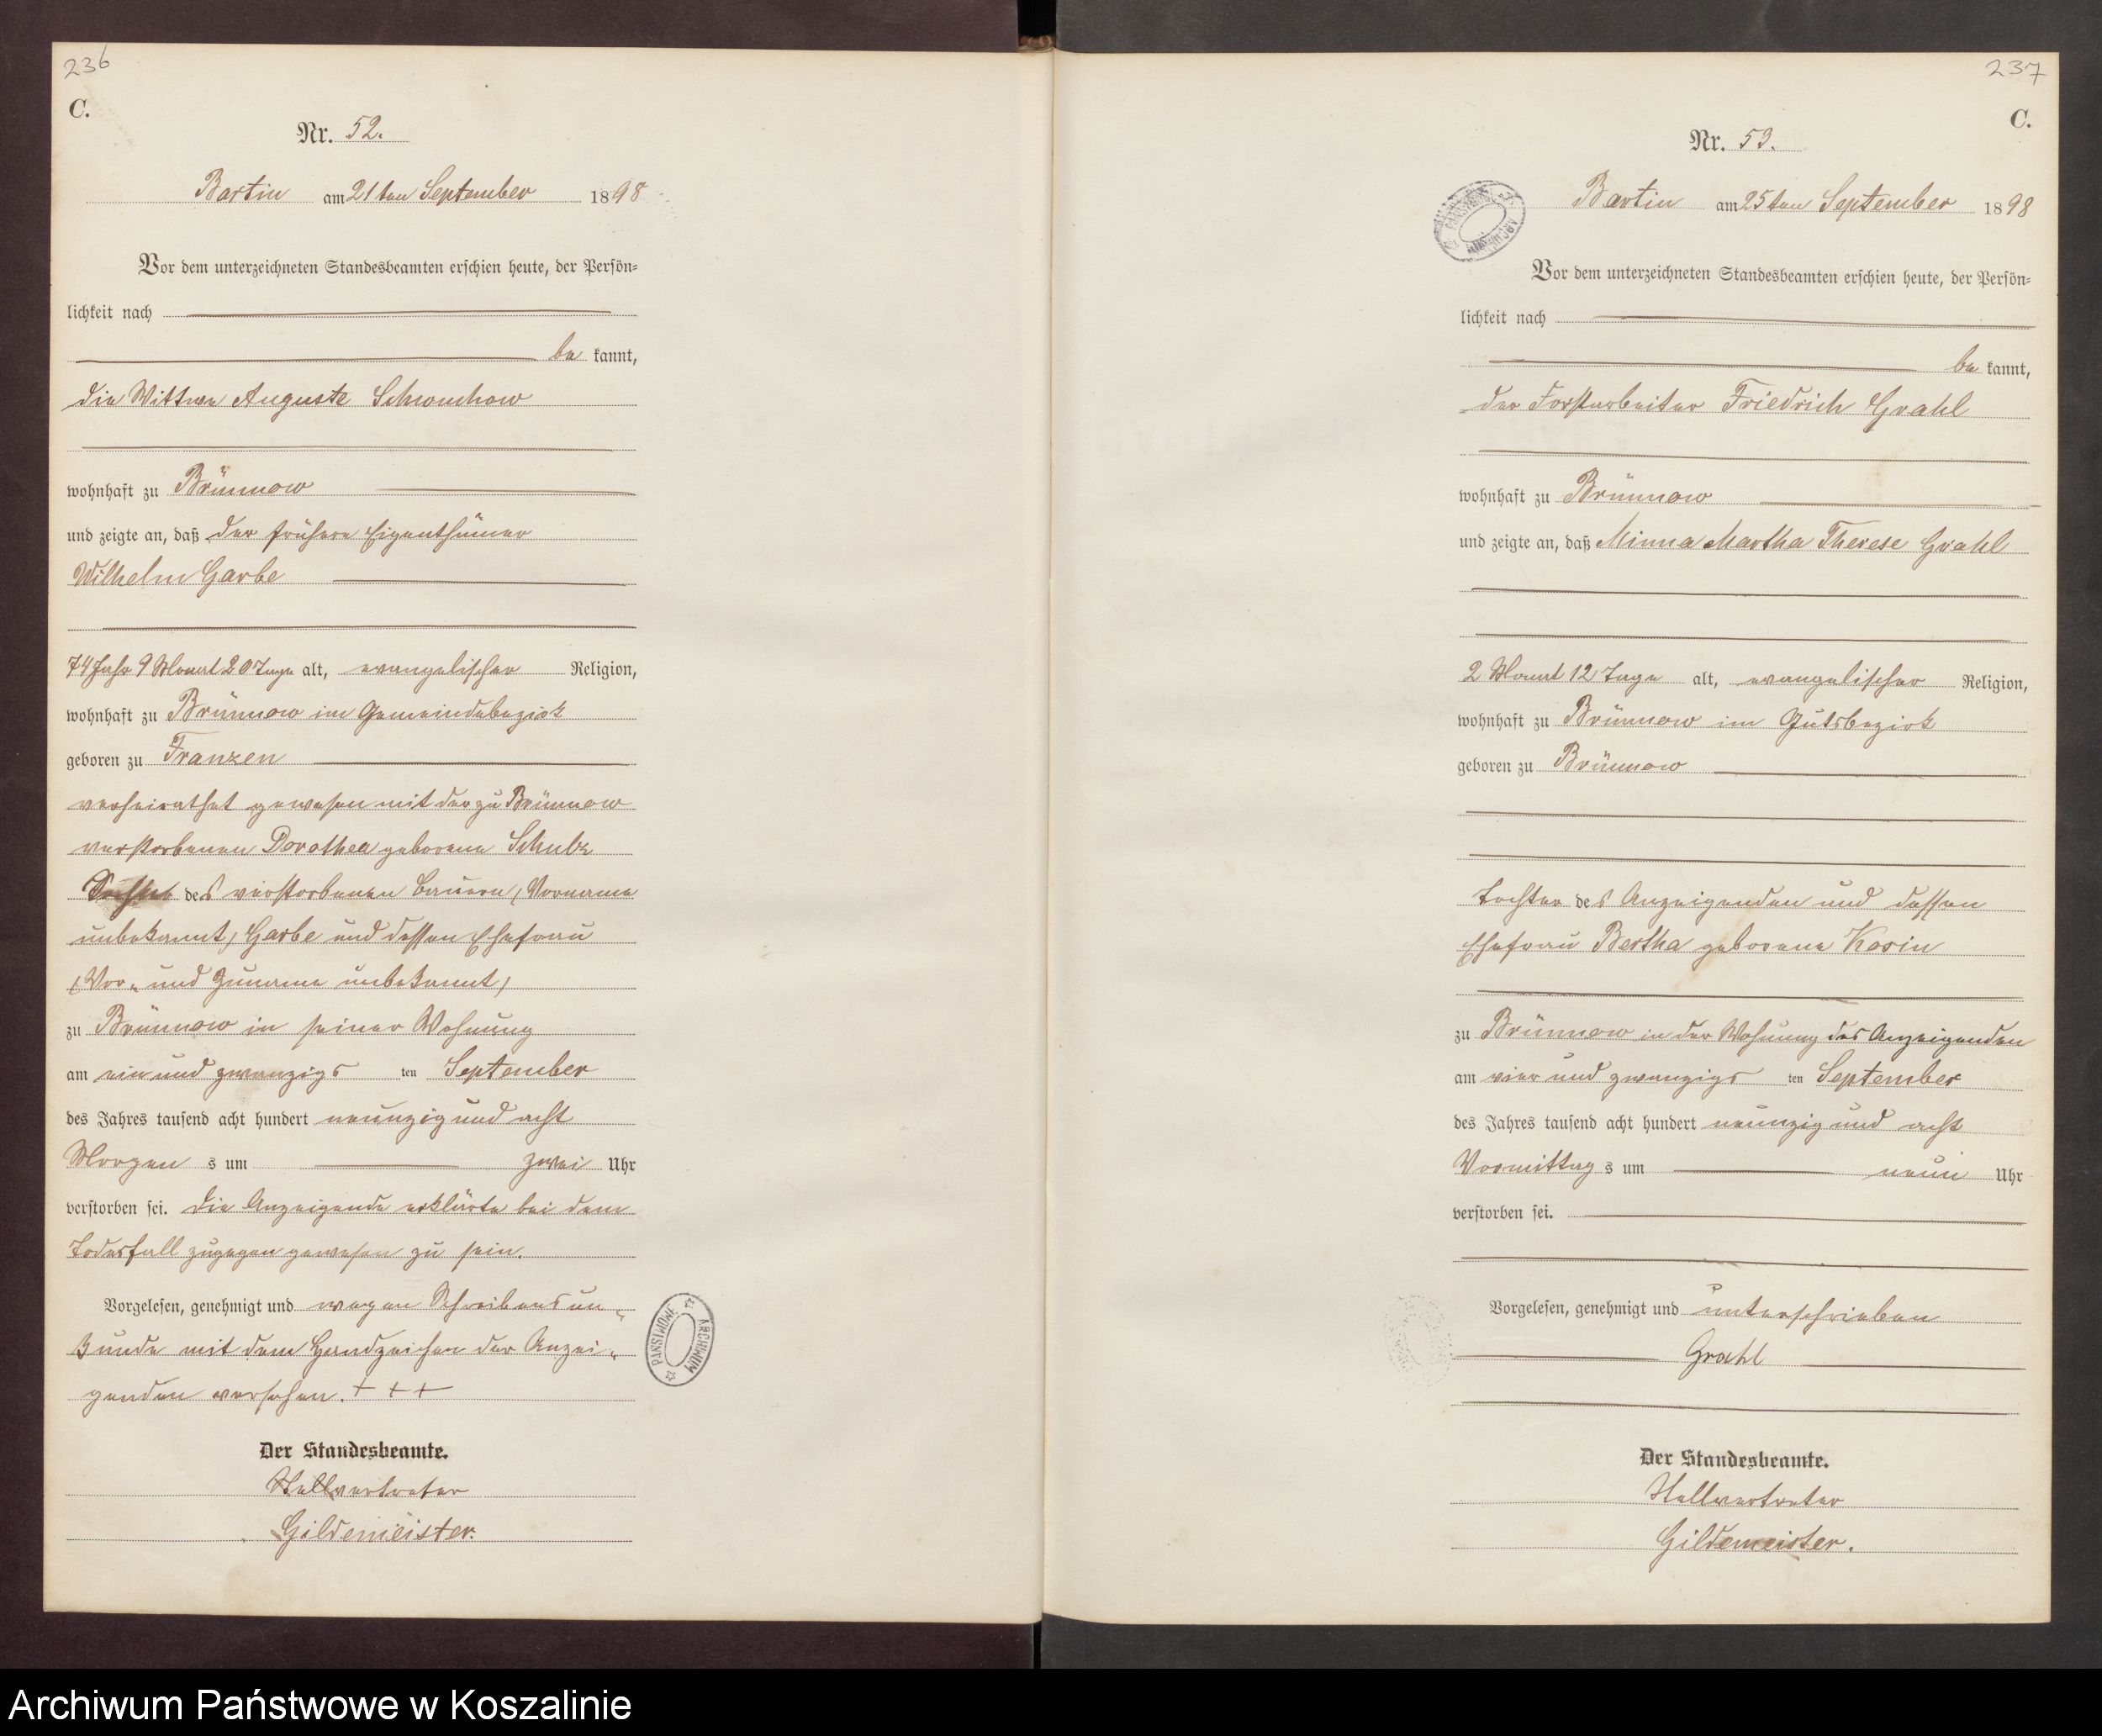 236
C.
Nr. 52.
Bartin am 21ten September 1898
Vor dem unterzeichneten Standesbeamten erschien heute, der Persön-
lichkeit nach
be kannt,
die Wittwe Auguste Schwuchow
wohnhaft zu Brünnow
und zeigte an, daß der frühere Eigenthümer
Wilhelm Garbe
74 Jahr 9 Monat 20 Tage alt, evangelischer Religion,
wohnhaft zu Brünnow im Gemeindebezirk
geboren zu Franzen
verheirathet gewesen mit der zu Brünnow
verstorbenen Dorothea geborene Schulz
des verstorbenen Bauern (Vorname
unbekannt) Garbe und dessen Ehefrau
(Vor- und Zuname unbekannt)
zu Brünnow in seiner Wohnung
am ein und zwanzigs ten September
des Jahres tausend acht hundert neunzig und acht
Morgen s um zwei Uhr
verstorben sei. Die Anzeigende erklärte bei dem
Todesfall zugegen gewesen zu sein.
Vorgelesen, genehmigt und wegen Schreibensun-
kunde mit dem Handzeichen der Anzei-
genden versehen. + + +
Der Standesbeamte.
Stellvertreter
Gildemeister.
ARCHIWUM PAŃSTWOWE
237
C.
Nr. 53.
Bartin am 25ten September 1898
Vor dem unterzeichneten Standesbeamten erschien heute, der Persön-
lichkeit nach
be kannt,
der Forstarbeiter Friedrich Grahl
wohnhaft zu Brünnow
und zeigte an, daß Minna Martha Therese Grahl
2 Monat 12 Tage alt, evangelischer Religion,
wohnhaft zu Brünnow im Gutsbezirk
geboren zu Brünnow
Tochter des Anzeigenden und dessen
Ehefrau Bertha geborene Kosin
zu Brünnow in der Wohnung des Anzeigenden
am vier und zwanzigs ten September
des Jahres tausend acht hundert neunzig und acht
Vormittag s um neun Uhr
verstorben sei.
Vorgelesen, genehmigt und unterschrieben
Grahl
Der Standesbeamte.
Stellvertreter
Gildemeister.
Archiwum Państwowe w Koszalinie